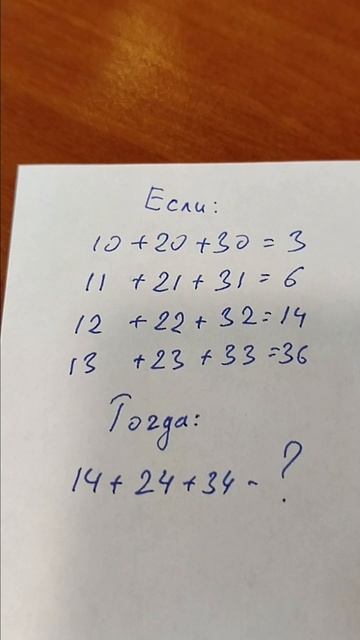 Если:
10 + 20 + 30 = 3
11 + 21 + 31 = 6
12 + 22 + 32 = 14
13 + 23 + 33 = 36
Тогда:
14 + 24 + 34 - ?